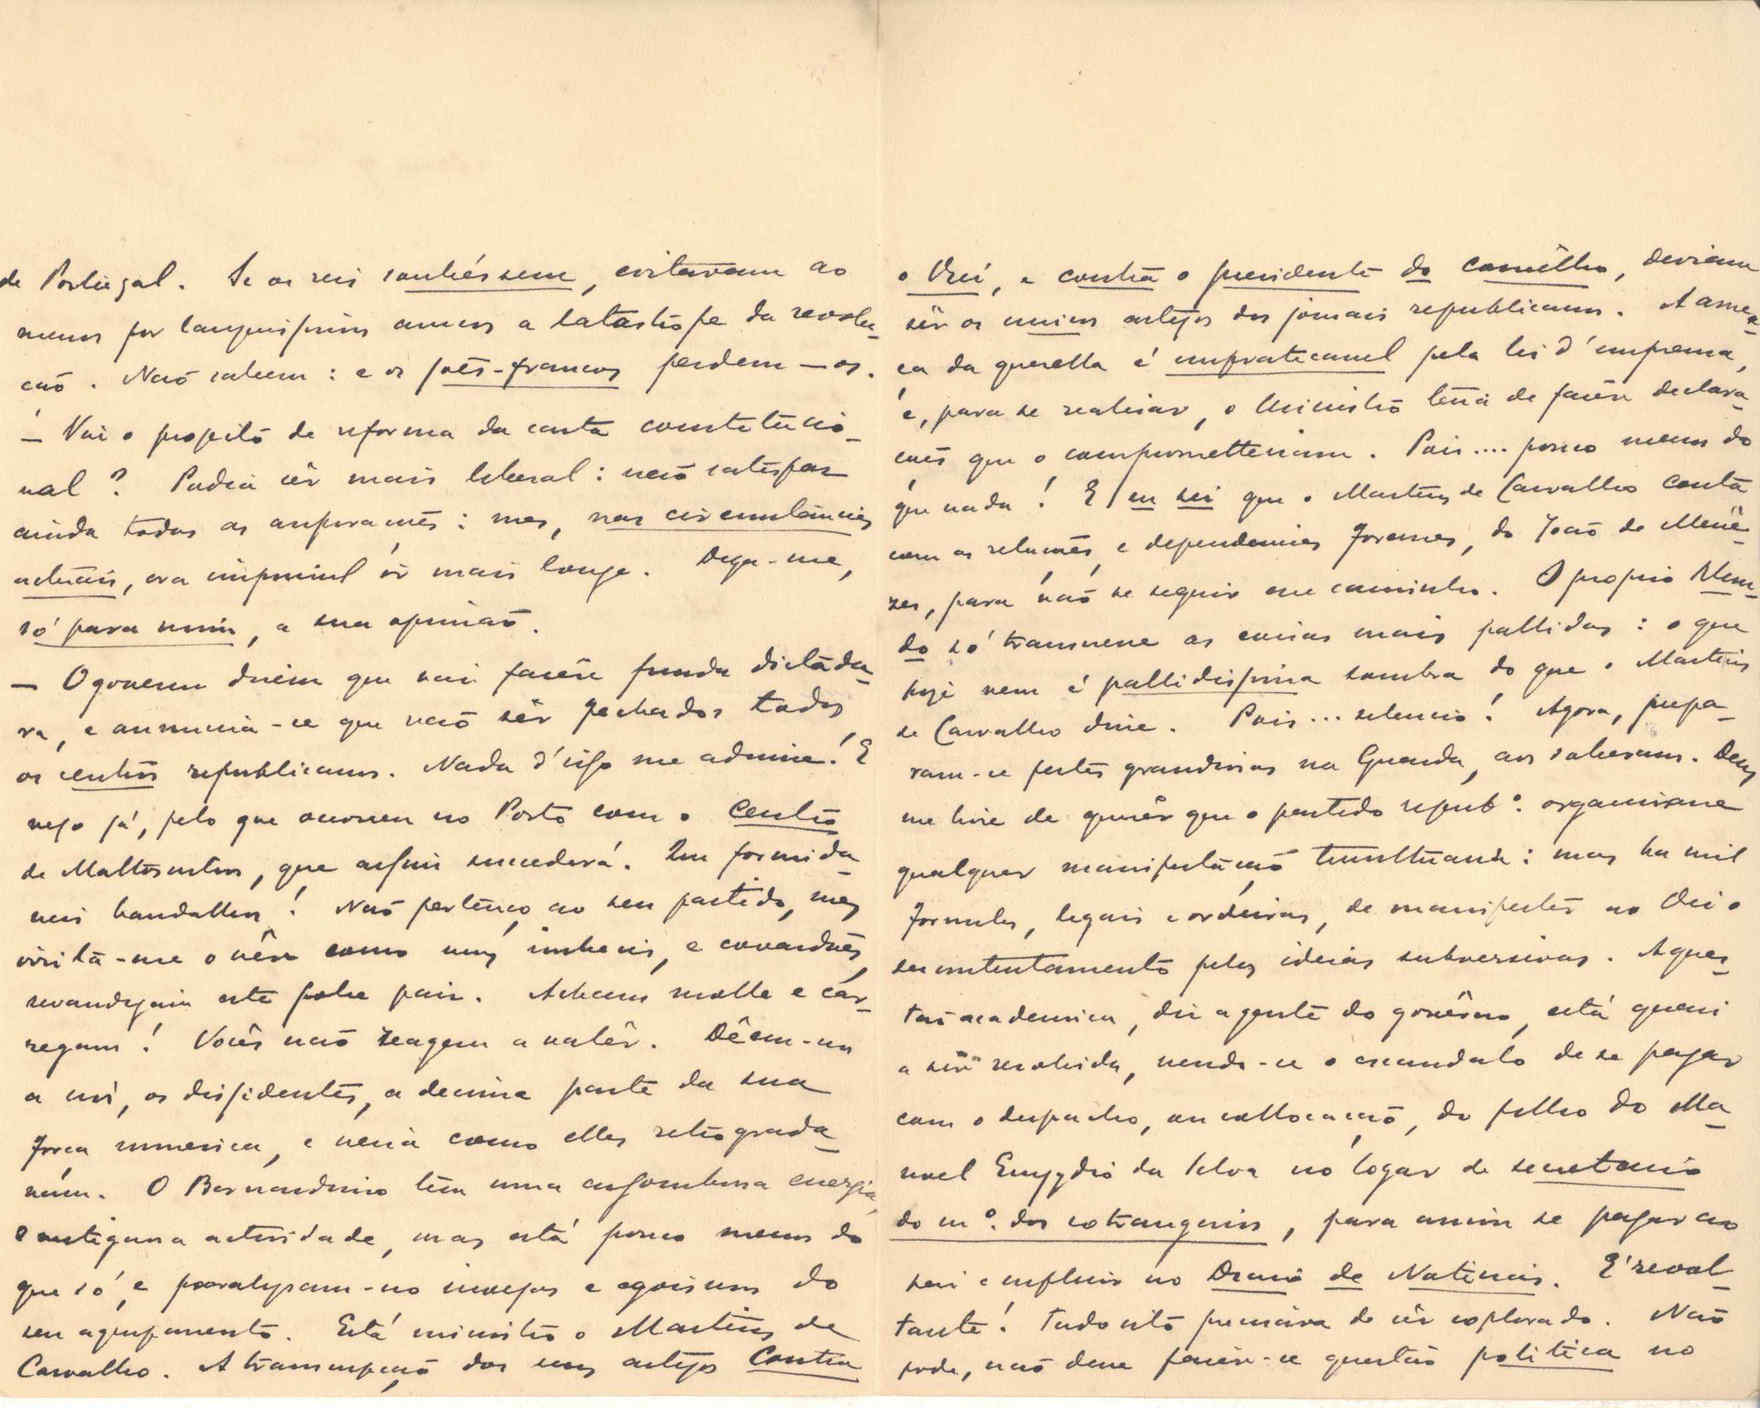 de Portugal. Se os reis soubéssem, evitavam ao
menos por longuissimos annos a catastrofe da revolu-
ção. Não sabem: e os joões-francos perdem-os.
— Vai o projecto de reforma da carta constitucio-
nal? Podia sêr mais liberal: não satisfaz
ainda todas as aspirações: mas, nas circumstancias
actuais, era impossivel ir mais longe. Diga-me,
só para mim, a sua opinião.
— O governo dizem que vai fazêr funda dictadu-
ra, e annuncia-se que vão sêr fechados todos
os centros republicanos. Nada d'isso me admira! E
vejo já, pelo que occorreu no Porto com o Centro
de Mattosinhos, que assim succederá. Que formida-
veis bandalhos! Não pertenço ao seu partido, mas
irrita-me o vêr como uns imbecis, e covardões,
sevandijam este pobre paiz. Acham molle e car-
regam! Vocês não reagem a valêr. Dêem-nos
a nós, os dissidentes, a decima parte da sua
força numerica, e veria como elles retrograda-
vam. O Bernardino tem uma assombrosa energia
e actividade, mas está pouco menos do
que só, e paralysam-no invejas e egoismos do
seu agrupamento. Está ministro o Martins de
Carvalho. A transcripção dos seus artigos contra
o Rei, e contra o presidente do conselho, deviam
sêr os unicos artigos dos jornais republicanos. A amea-
ça da querella é impraticavel pela lei d'imprensa,
e, para se realisar, o Ministro teria de fazêr declara-
ções que o comprometteriam. Pois.... pouco menos do
que nada! E eu sei que o Martins de Carvalho conta
com as relações, e dependencias forenses, do João de Menê-
zes, para não se seguir esse caminho. O proprio Mun-
do só transcreve as coisas mais pallidas: o que
hoje vem é pallidissima sombra do que o Martins
de Carvalho disse. Pois... silencio! Agora, prepa-
ram-se festas grandiosas na Guarda, aos soberanos. Deus
me livre de querêr que o partido repub.º organisasse
qualquer manifestação tumultuaria: mas ha mil
formulas, legais e ordeiras, de manifestar ao Rei o
descontentamento pelas ideias subversivas. A ques-
tão academica, diz a gente do govêrno, está quasi
a sêr resolvida, vendo-se o escandalo de se pagar
com o despacho, ou collocação, do filho do Ma-
noel Emygdio da Silva no logar de secretario
do m.º dos extrangeiros, para assim se pagar ao
pai e influir no Diario de Noticias. É revol-
tante! Tudo isto precisava de sêr explorado. Não
pode, não deve fazêr-se questão politica no